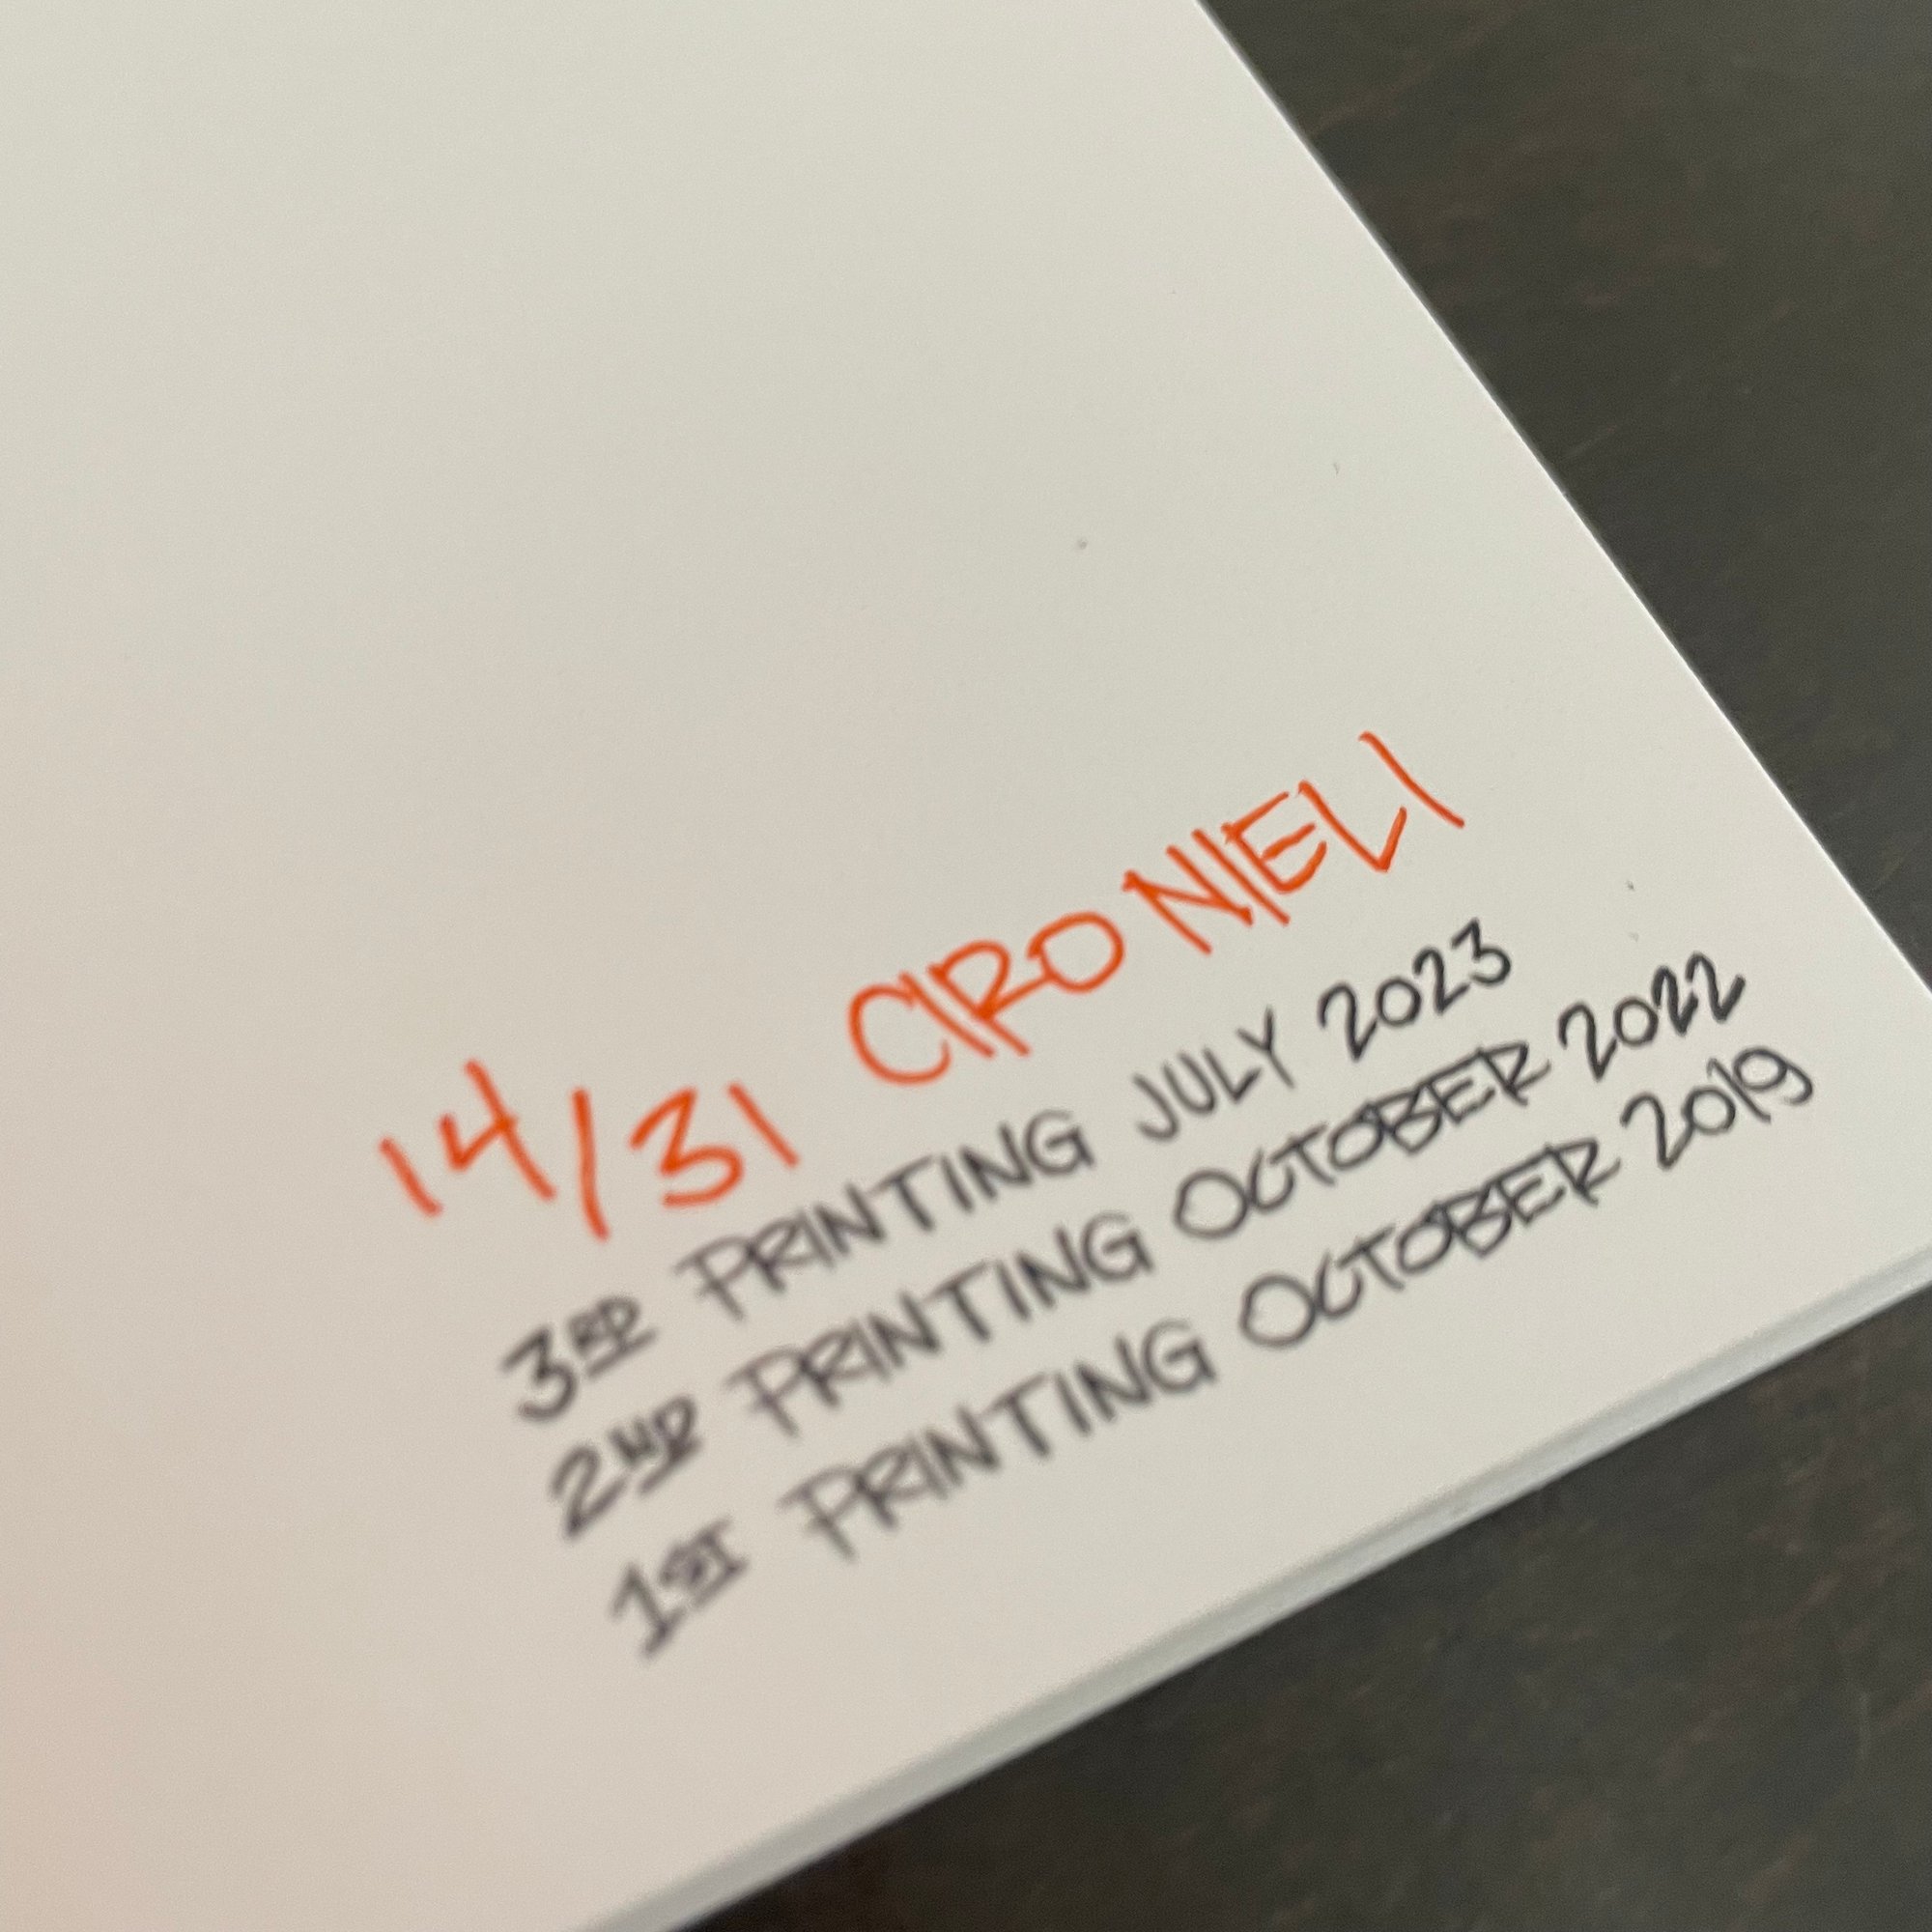 14/31 CIRO NIELI
3RD PRINTING JULY 2023
2ND PRINTING OCTOBER 2022
1ST PRINTING OCTOBER 2019